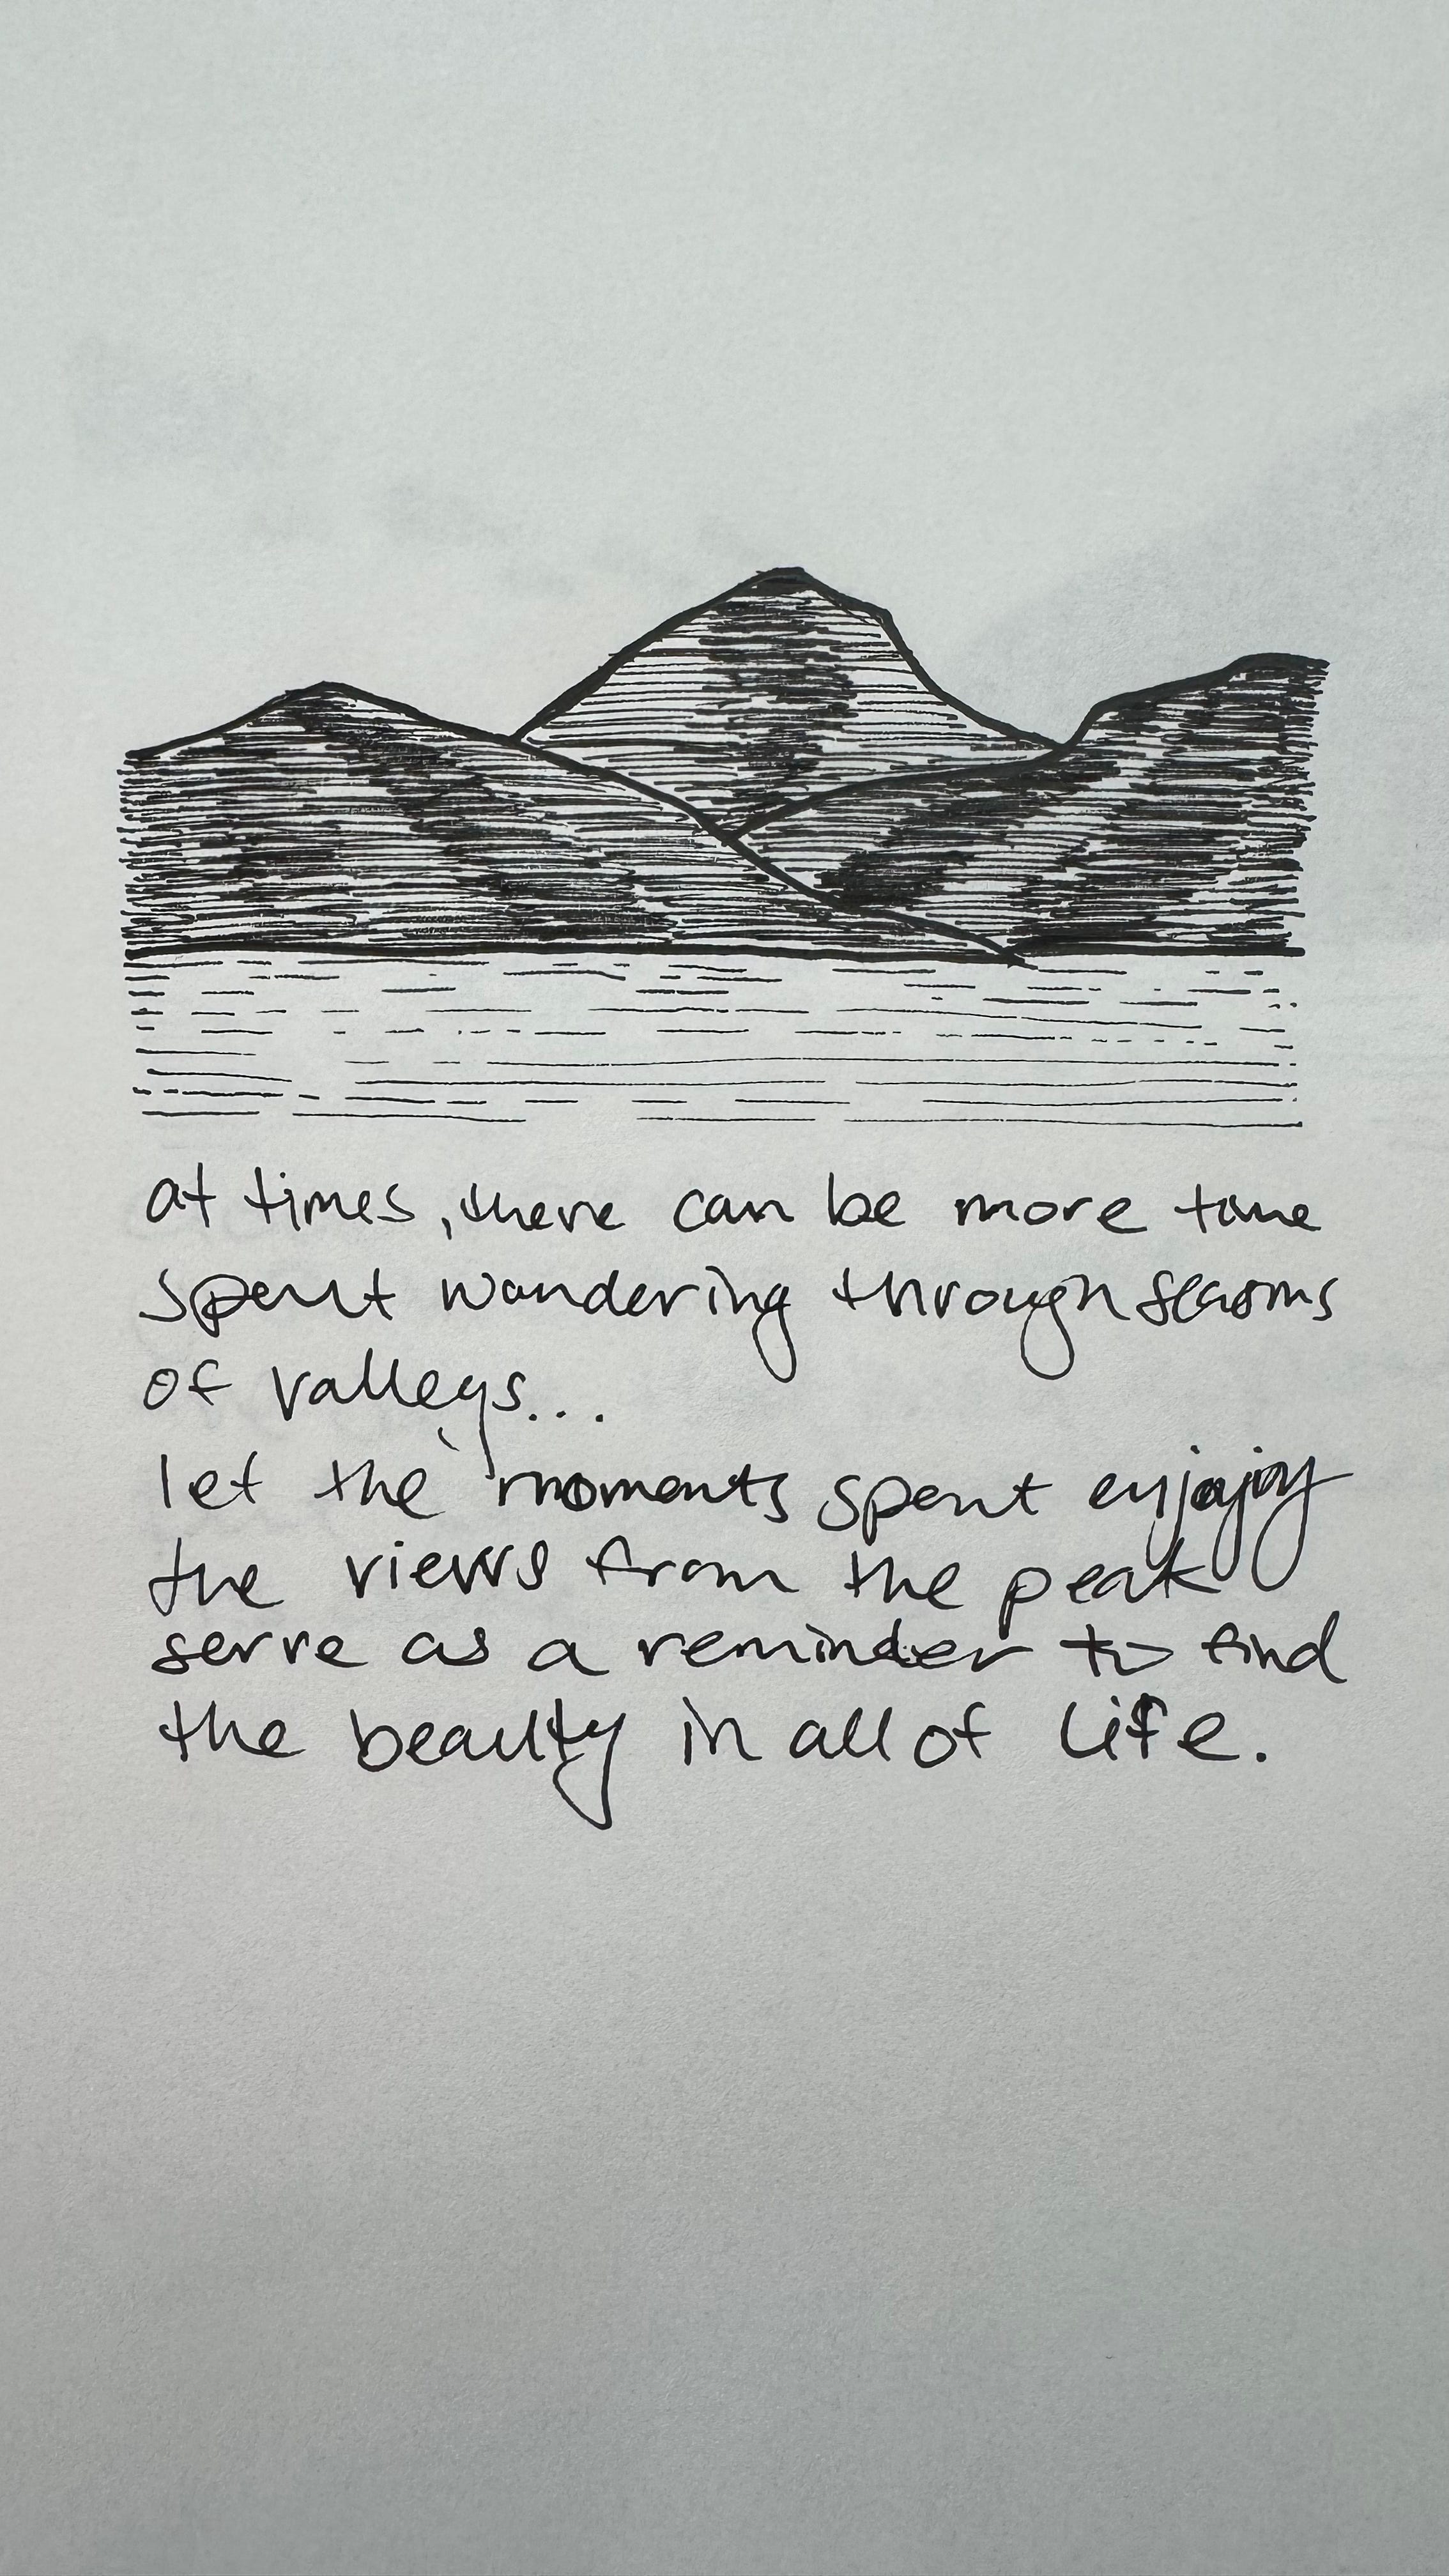 at times, there can be more time
spent wandering through seasons
of valleys...
let the moments spent enjoying
the views from the peak
serve as a reminder to find
the beauty in all of life.